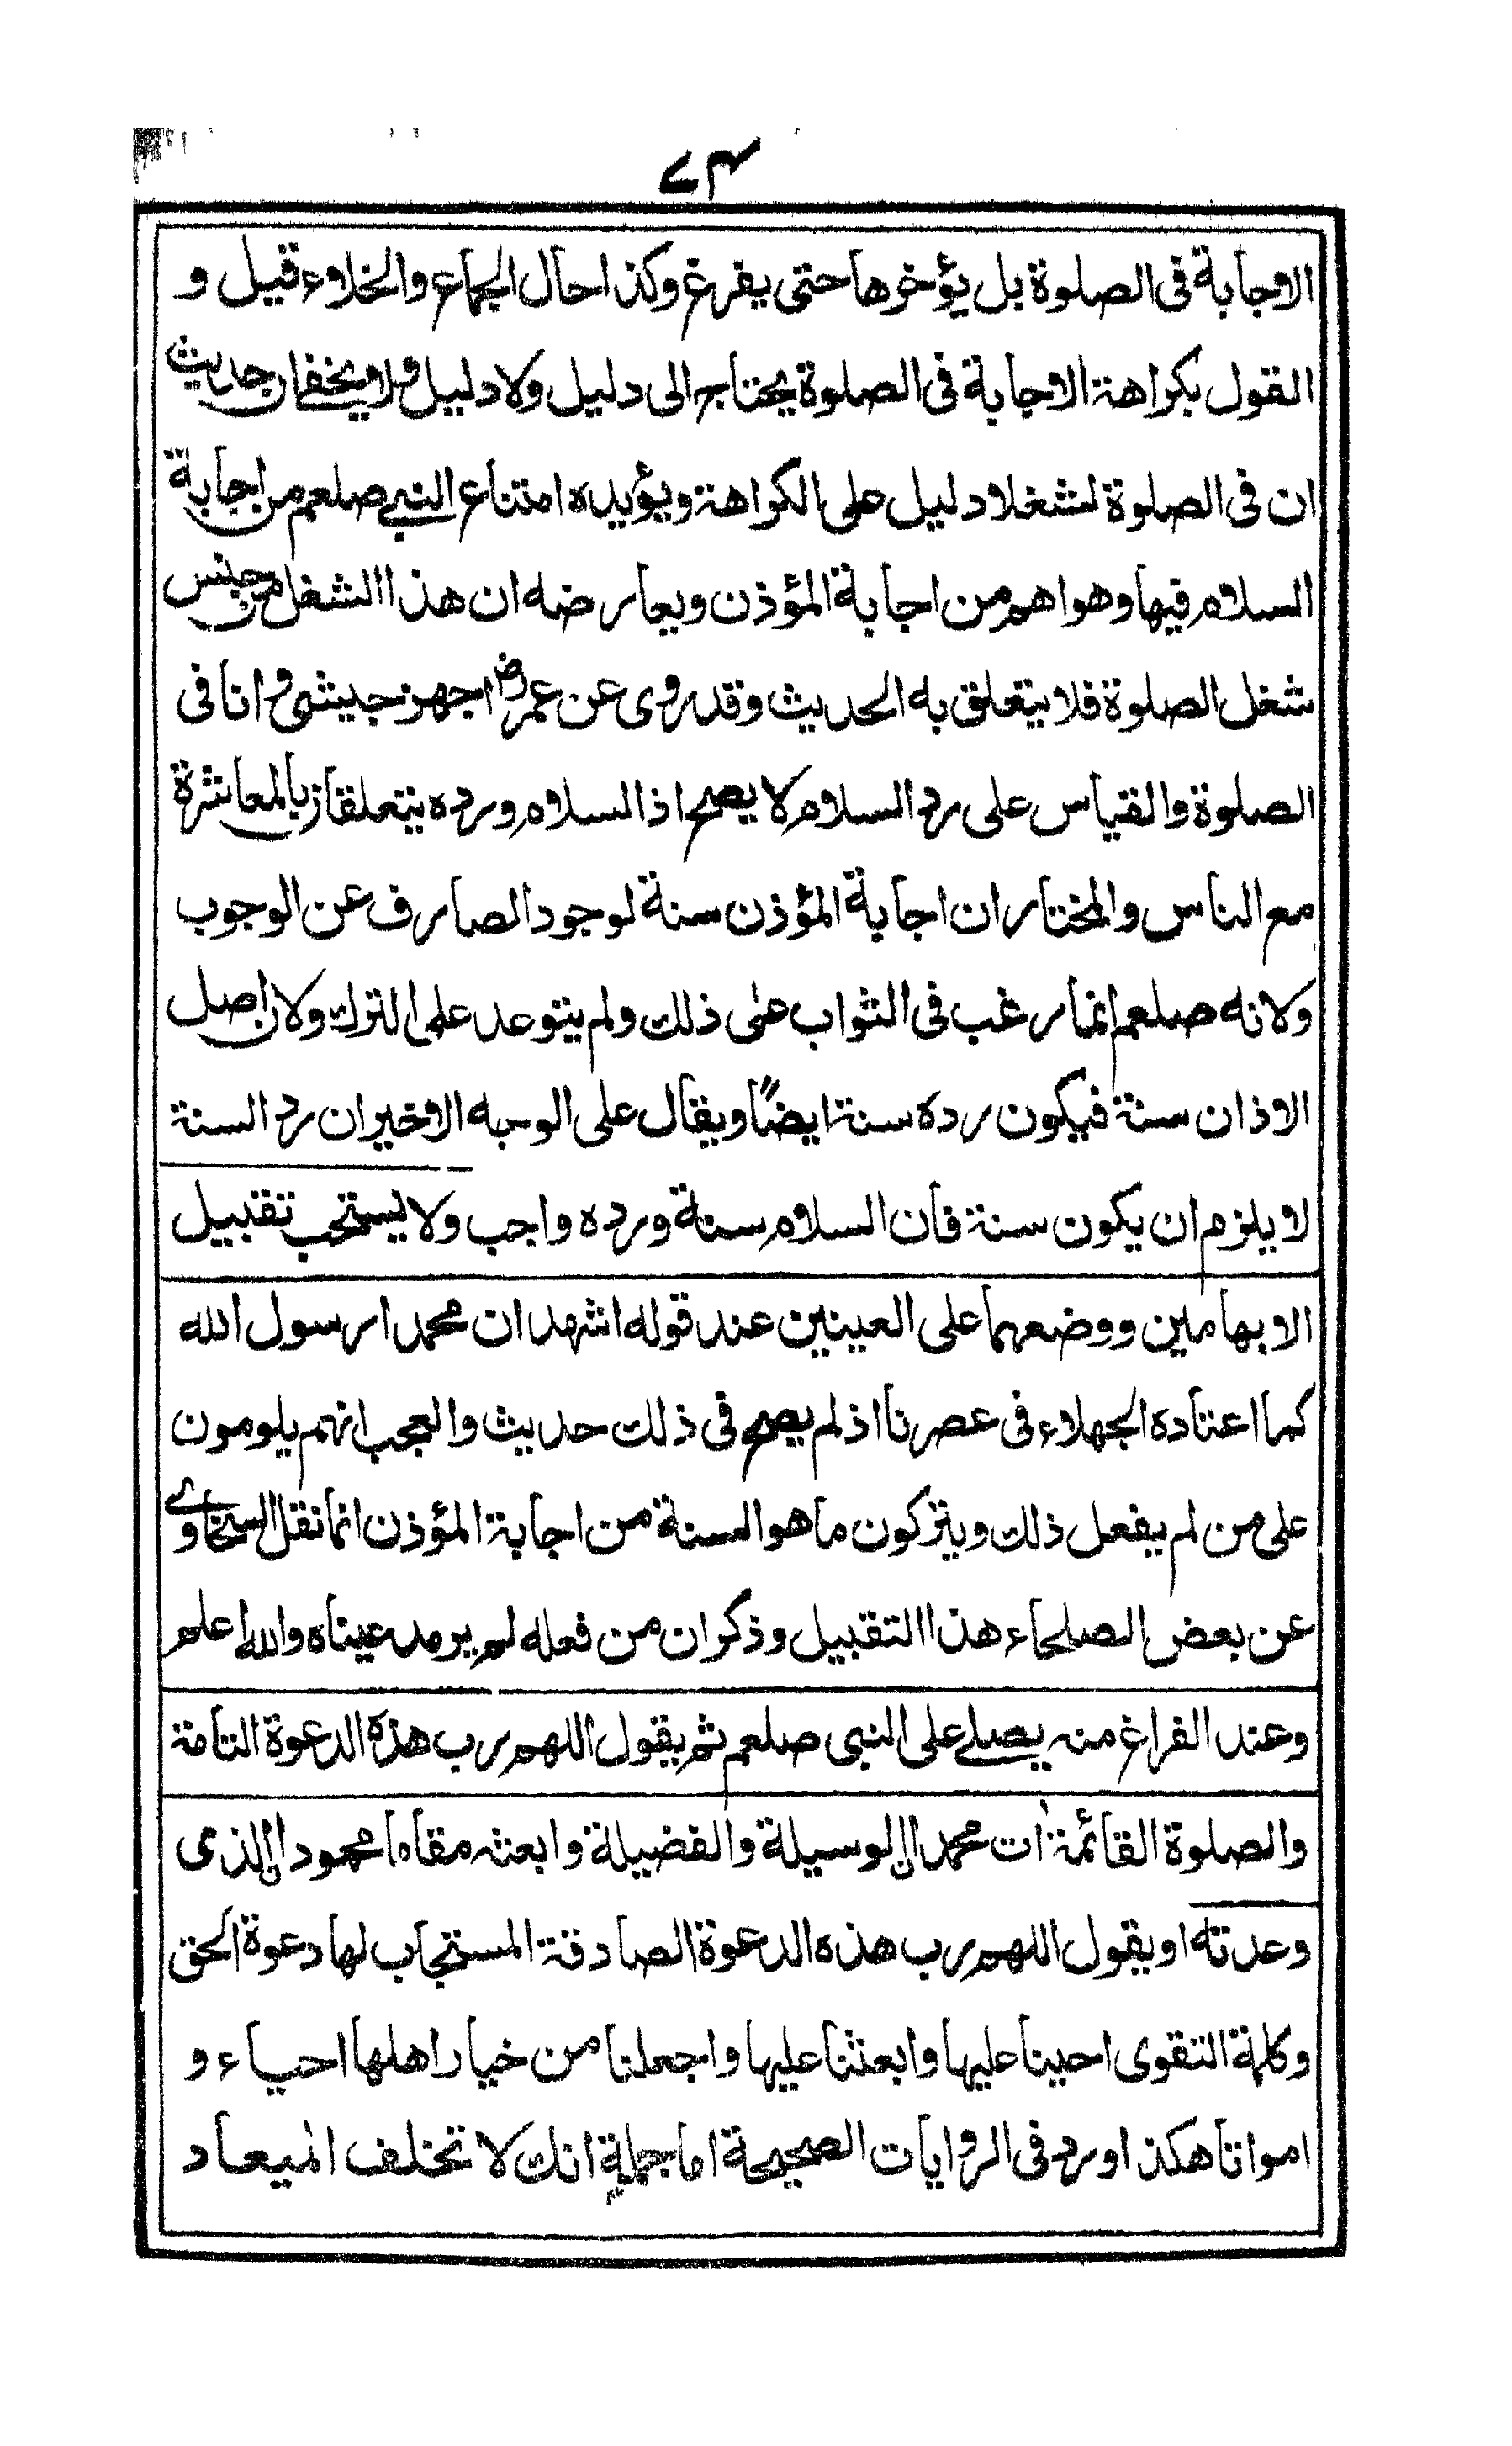 ٧٤
الاجابة فى الصلوة بل يؤخرها حتى يفرغ وكذا حال الجماع والخلاء قيل و
القول بكراهة الاجابة فى الصلوة يحتاج الى دليل ولا دليل ولا يخفى ان حديث
ان فى الصلوة لشغلا دليل على الكراهة ويؤيده امتناع النبى صلعم من اجابة
السلام فيها وهو اهم من اجابة المؤذن ويعارضه ان هذا الشغل من جنس
شغل الصلوة فلا يتعلق به الحديث وقد روى عن عمر رض اجهز جيشى وانا فى
الصلوة والقياس على رد السلام لا يصح اذ السلام ورده يتعلقان بالمعاشرة
مع الناس والمختار ان اجابة المؤذن سنة لوجود الصارف عن الوجوب
ولانه صلعم انما رغب فى الثواب على ذلك ولم يتوعد على الترك ولان اصل
الاذان سنة فيكون رده سنة ايضاً ويقال على الوجه الاخير ان رد السنة
لا يلزم ان يكون سنة فان السلام سنة ورده واجب ولا يستحب تقبيل
الابهامين ووضعهما على العينين عند قوله اشهد ان محمدا رسول الله
كما اعتاده الجهلاء فى عصرنا اذ لم يصح فى ذلك حديث والعجب انهم يلومون
على من لم يفعل ذلك ويتركون ما هو السنة من اجابة المؤذن انما نقل السخاوے
عن بعض الصلحاء هذا التقبيل وذكر ان من فعله لم يرمد عيناه والله اعلم
وعند الفراغ منه يصلے على النبى صلعم ثم يقول اللهم رب هذه الدعوة التامة
والصلوة القائمة اٰت محمدا الوسيلة والفضيلة وابعثه مقاما محمودا الذى
وعدته او يقول اللهم رب هذه الدعوة الصادقة المستجاب لها دعوة الحق
وكلمة التقوى احينا عليها وابعثنا عليها واجعلنا من خيار اهلها احياء و
امواتا هكذا ورد فى الروايات الصحيحة اما جملة انك لا تخلف الميعاد